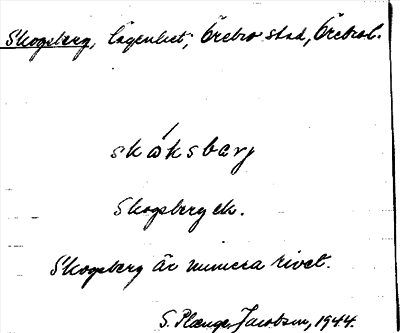 Skogsberg, lägenhet, Örebro stad, Örebro l.
skɷ́ksbarj
Skogsberg ek.
Skogsberg är numera rivet.
S. Plænge Jacobson, 1944.